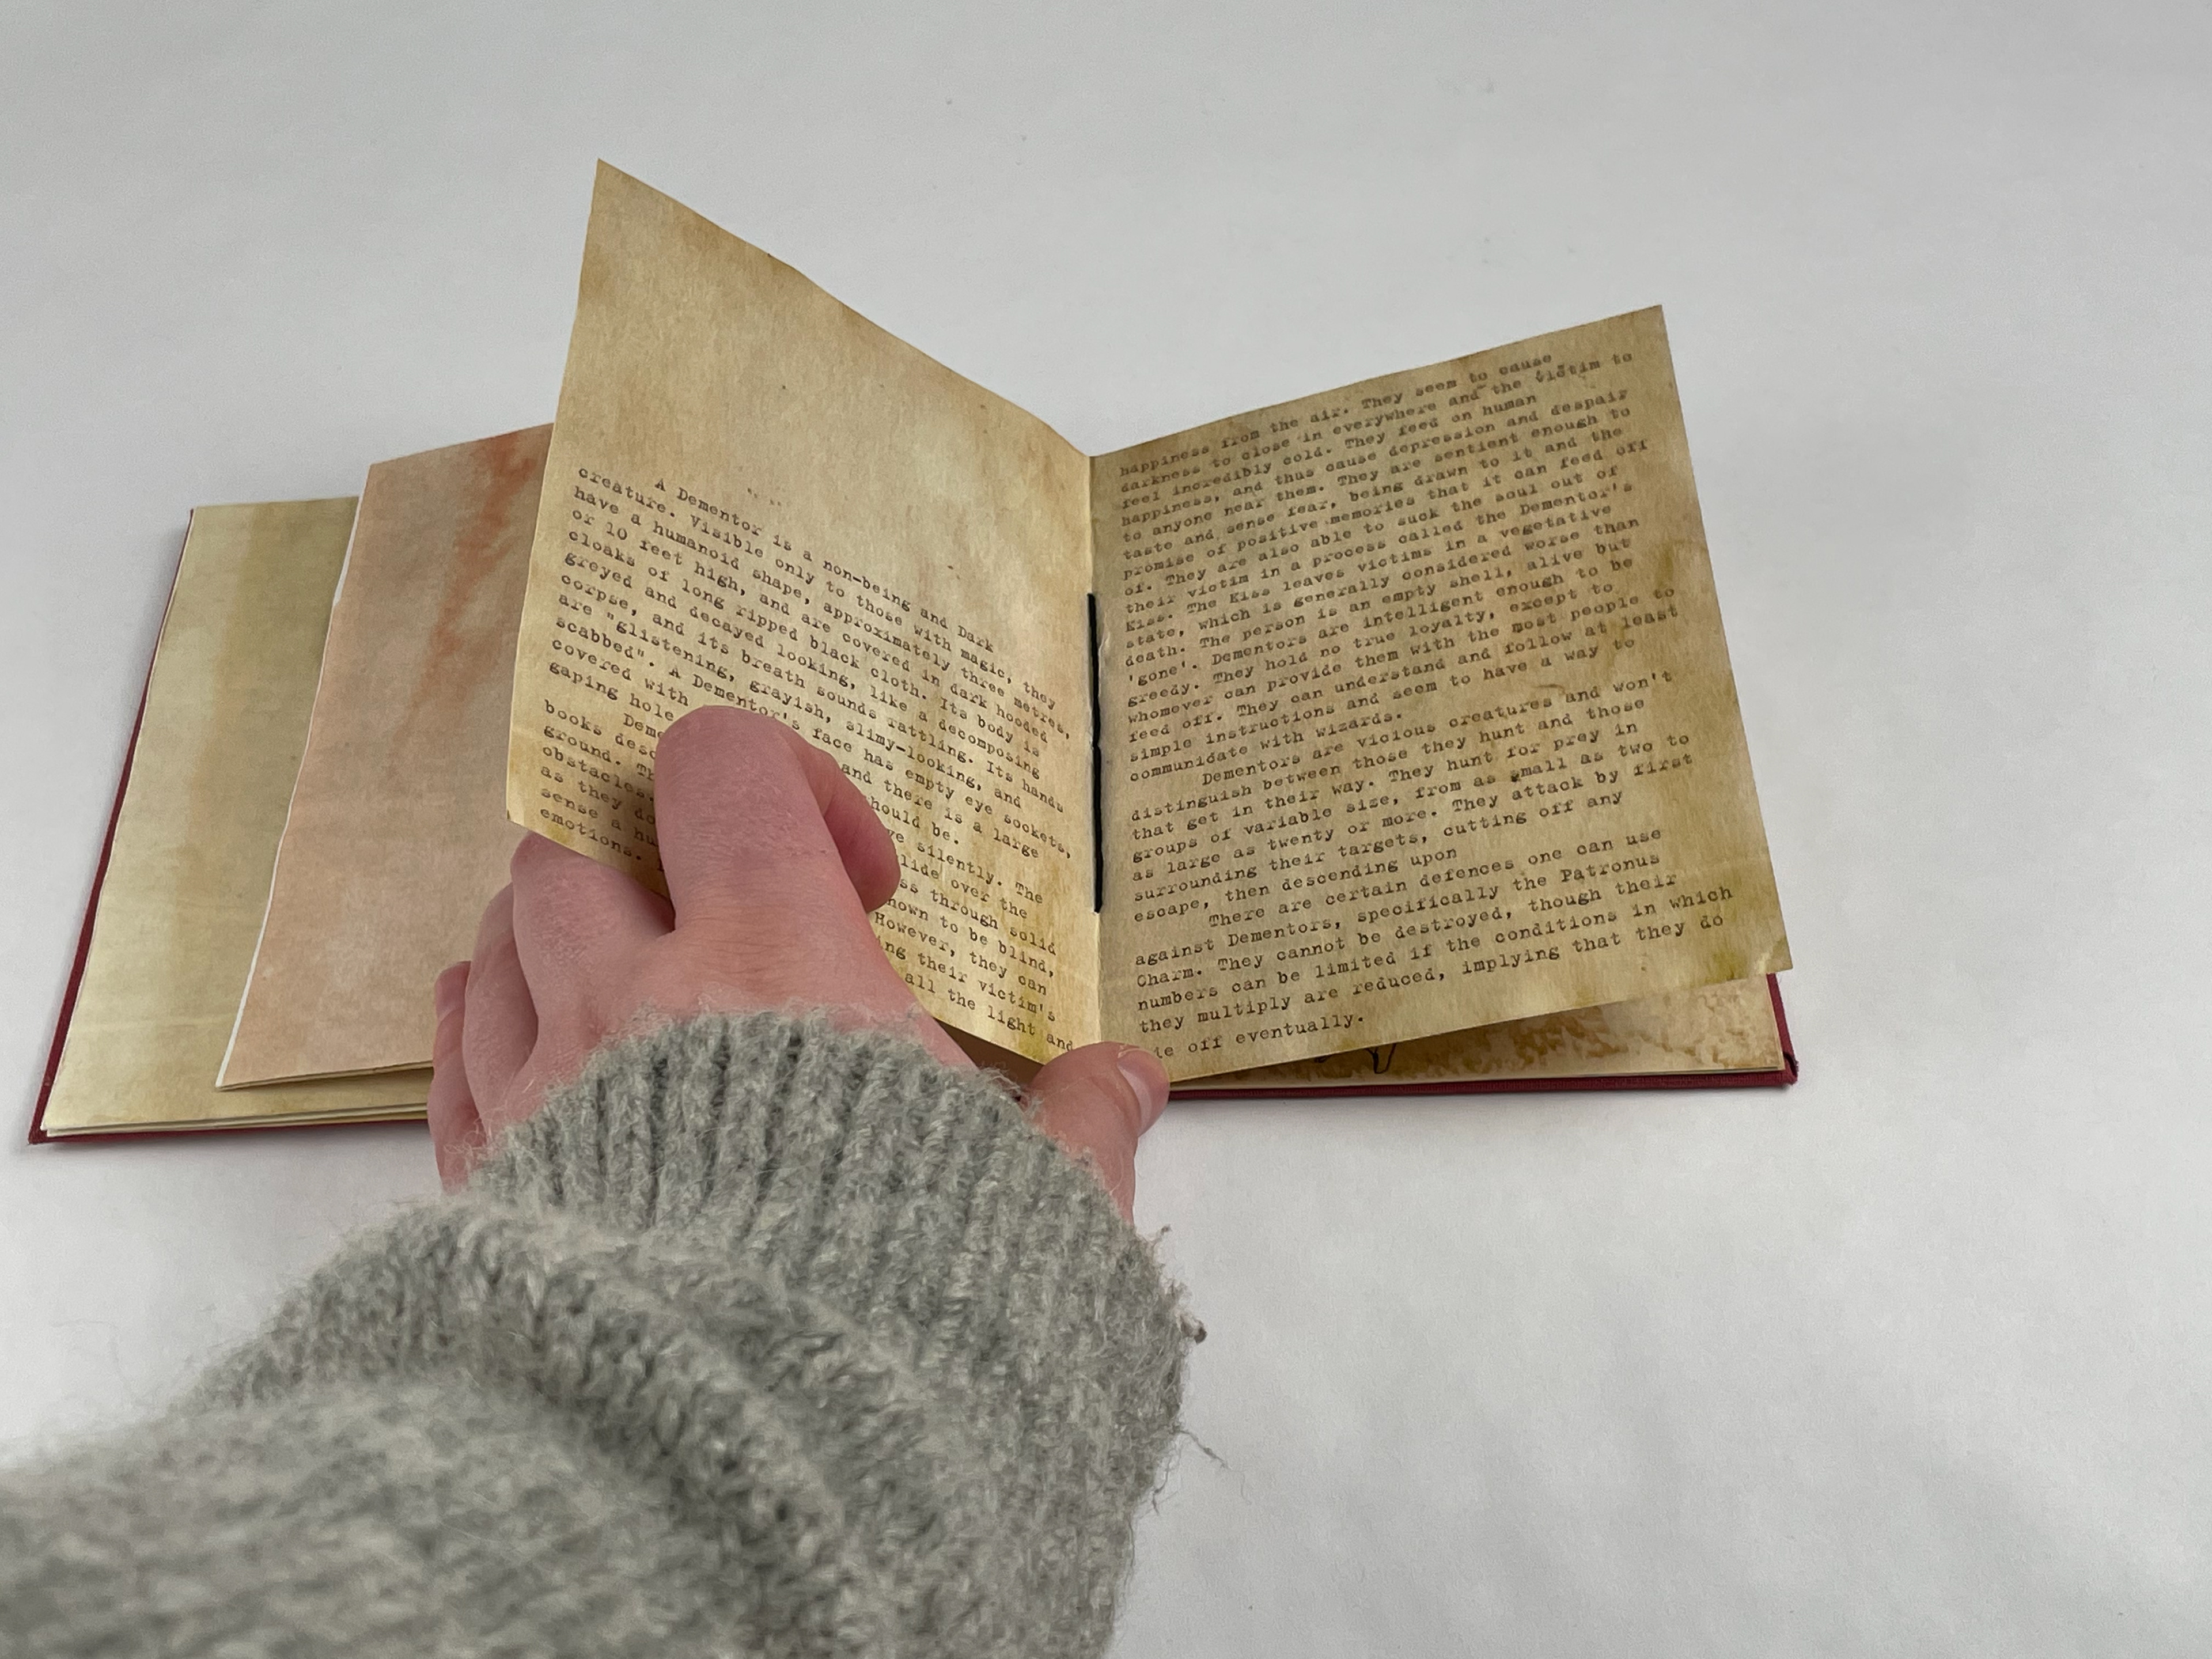 A Dementor is a non-being and Dark
creature. Visible only to those with magic, they
have a humanoid shape, approximately three metres,
or 10 feet high, and are covered in dark hooded
cloaks of long ripped black cloth. Its body is
greyed and decayed looking, like a decomposing
corpse, and its breath sounds rattling. Its hands
are "glistening, grayish, slimy-looking, and
scabbed". A Dementor's face has empty eye sockets,
covered with and there is a large
gaping hole should be.
silently. The
books over the
ground. through solid
obstacles. to be blind,
as they However, they can
sense a their victim's
emotions. all the light and
happiness from the air. They seem to cause
darkness to close in everywhere and the victim to
feel incredibly cold. They feed on human
happiness, and thus cause depression and despair
to anyone near them. They are sentient enough to
taste and sense fear, being drawn to it and the
promise of positive memories that it can feed off
of. They are also able to suck the soul out of
their victim in a process called the Dementor's
Kiss. The Kiss leaves victims in a vegetative
state, which is generally considered worse than
death. The person is an empty shell, alive but
'gone'. Dementors are intelligent enough to be
greedy. They hold no true loyalty, except to
whomever can provide them with the most people to
feed off. They can understand and follow at least
simple instructions and seem to have a way to
communicate with wizards.
Dementors are vicious creatures and won't
distinguish between those they hunt and those
that get in their way. They hunt for prey in
groups of variable size, from as small as two to
as large as twenty or more. They attack by first
surrounding their targets, cutting off any
escape, then descending upon
There are certain defences one can use
against Dementors, specifically the Patronus
Charm. They cannot be destroyed, though their
numbers can be limited if the conditions in which
they multiply are reduced, implying that they do
off eventually.